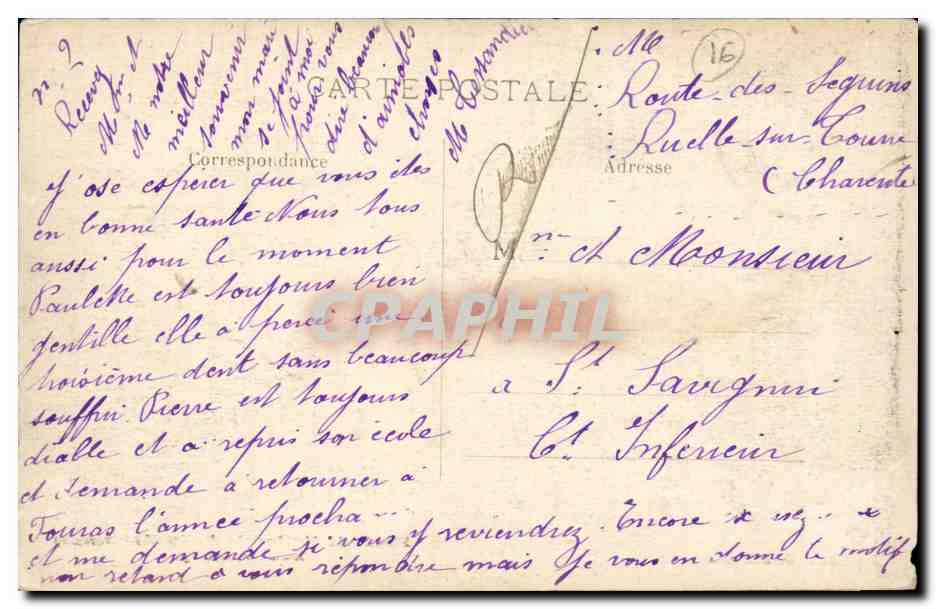 n° 2
Recevez
M. et
Me notre
meilleur
souvenir
mon mari
se joint
à moi
pour vous
dire beaucoup
d'aimables
choses
Me
CARTE POSTALE
Correspondance
Adresse
16
Me
Route-des-Seguins
Ruelle-sur-Touvre
(Charente
M me et Monsieur
a St Savignin
Ct Inferieur
J'ose espérer que vous êtes
en bonne santé Nous tous
aussi pour le moment
Paulette est toujours bien
gentille elle a percé une
troisième dent sans beaucoup
souffrir Pierre est toujours
diable et a repris son école
et demande à retourner à
Fouras l'année procha...
et me demande si vous y reviendrez. Encore
mon retard à vous répondre mais je vous en donne le motif
CPAPHIL